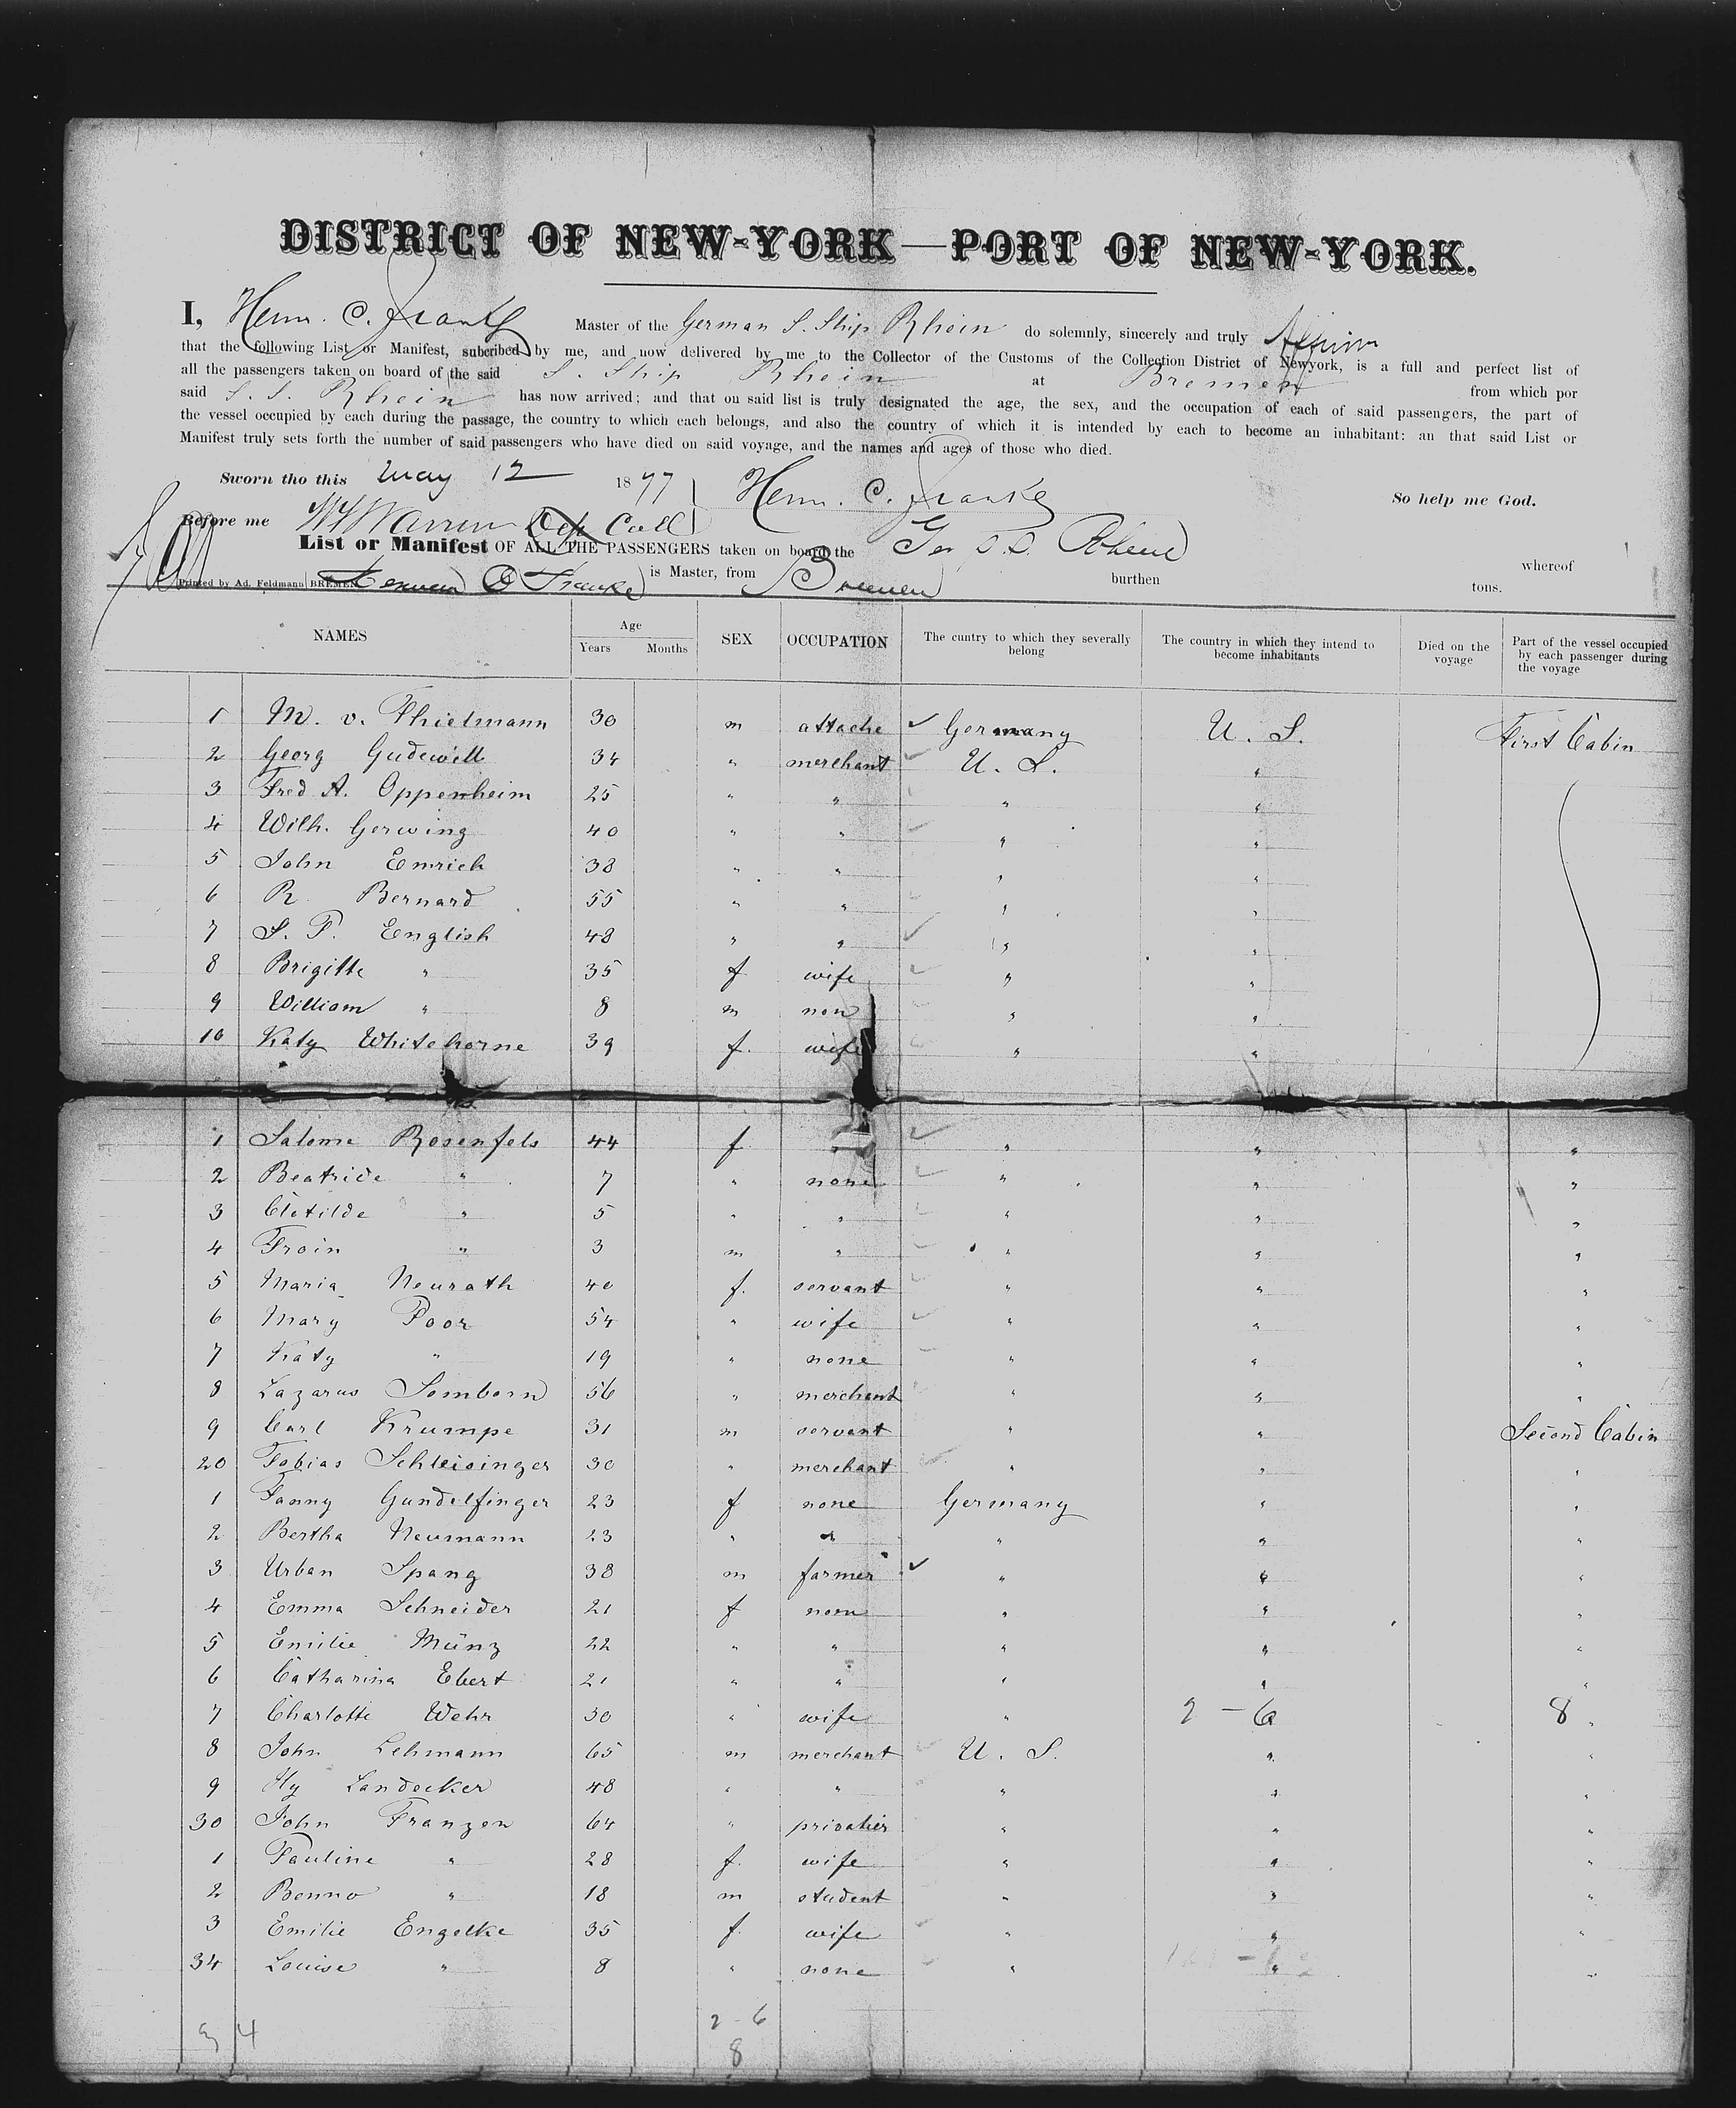 DISTRICT OF NEW-YORK—PORT OF NEW-YORK.
I, Herm. C. Franke Master of the German S. Ship Rhein do solemnly, sincerely and truly Affirm
that the following List or Manifest, subcribed by me, and now delivered by me to the Collector of the Customs of the Collection District of Newyork, is a full and perfect list of
all the passengers taken on board of the said S. Ship Rhein at Bremen from which por
said S. S. Rhein has now arrived; and that on said list is truly designated the age, the sex, and the occupation of each of said passengers, the part of
the vessel occupied by each during the passage, the country to which each belongs, and also the country of which it is intended by each to become an inhabitant: an that said List or
Manifest truly sets forth the number of said passengers who have died on said voyage, and the names and ages of those who died.
Sworn tho this May 12 1877 Herm. C. Franke So help me God.
Before me Warren Dep Coll
List or Manifest OF ALL THE PASSENGERS taken on board the Ger S.S. Rhein whereof
Herman C Franke is Master, from Bremen burthen tons.
Printed by Ad. Feldmann BREMEN
NAMES Age SEX OCCUPATION The cuntry to which they severally belong The country in which they intend to become inhabitants Died on the voyage Part of the vessel occupied by each passenger during the voyage
Years Months
1 M. v. Thielmann 30 m attache Germany U. S. First Cabin
2 Georg Gudewill 34 " merchant U. S. "
3 Fred A. Oppenheim 25 " " " "
4 Wilh. Gerwing 40 " " " "
5 John Emrich 38 " " " "
6 R. Bernard 55 " " " "
7 S. P. English 48 " " " "
8 Brigitte " 35 f wife " "
9 William " 8 m non " "
10 Katy Whitehorne 39 f. wife " "
1 Salome Rosenfels 44 f " " "
2 Beatride " 7 " none " " "
3 Clotilde " 5 " " " " "
4 Froin " 3 m " " " "
5 Maria Neurath 40 f. servant " " "
6 Mary Poor 54 " wife " " "
7 Katy " 19 " none " " "
8 Lazarus Somborn 56 " merchant " " "
9 Carl Krumpe 31 m servant " " Second Cabin
20 Tobias Schleisinger 30 " merchant " " "
1 Fanny Gundelfinger 23 f none Germany " "
2 Bertha Neumann 23 " " " " "
3 Urban Spang 38 m farmer " " "
4 Emma Schneider 21 f non " " "
5 Emilie Münz 22 " " " " "
6 Catharina Ebert 21 " " " " "
7 Charlotte Wehr 30 " wife " 2 - 6 8 "
8 John Lehmann 65 m merchant U. S. " "
9 Hy Landecker 48 " " " " "
30 John Franzen 64 " privatier " " "
1 Pauline " 28 f. wife " " "
2 Benno " 18 m student " " "
3 Emilie Engelke 35 f. wife " " "
34 Louise " 8 " none " " "
2 - 6
8